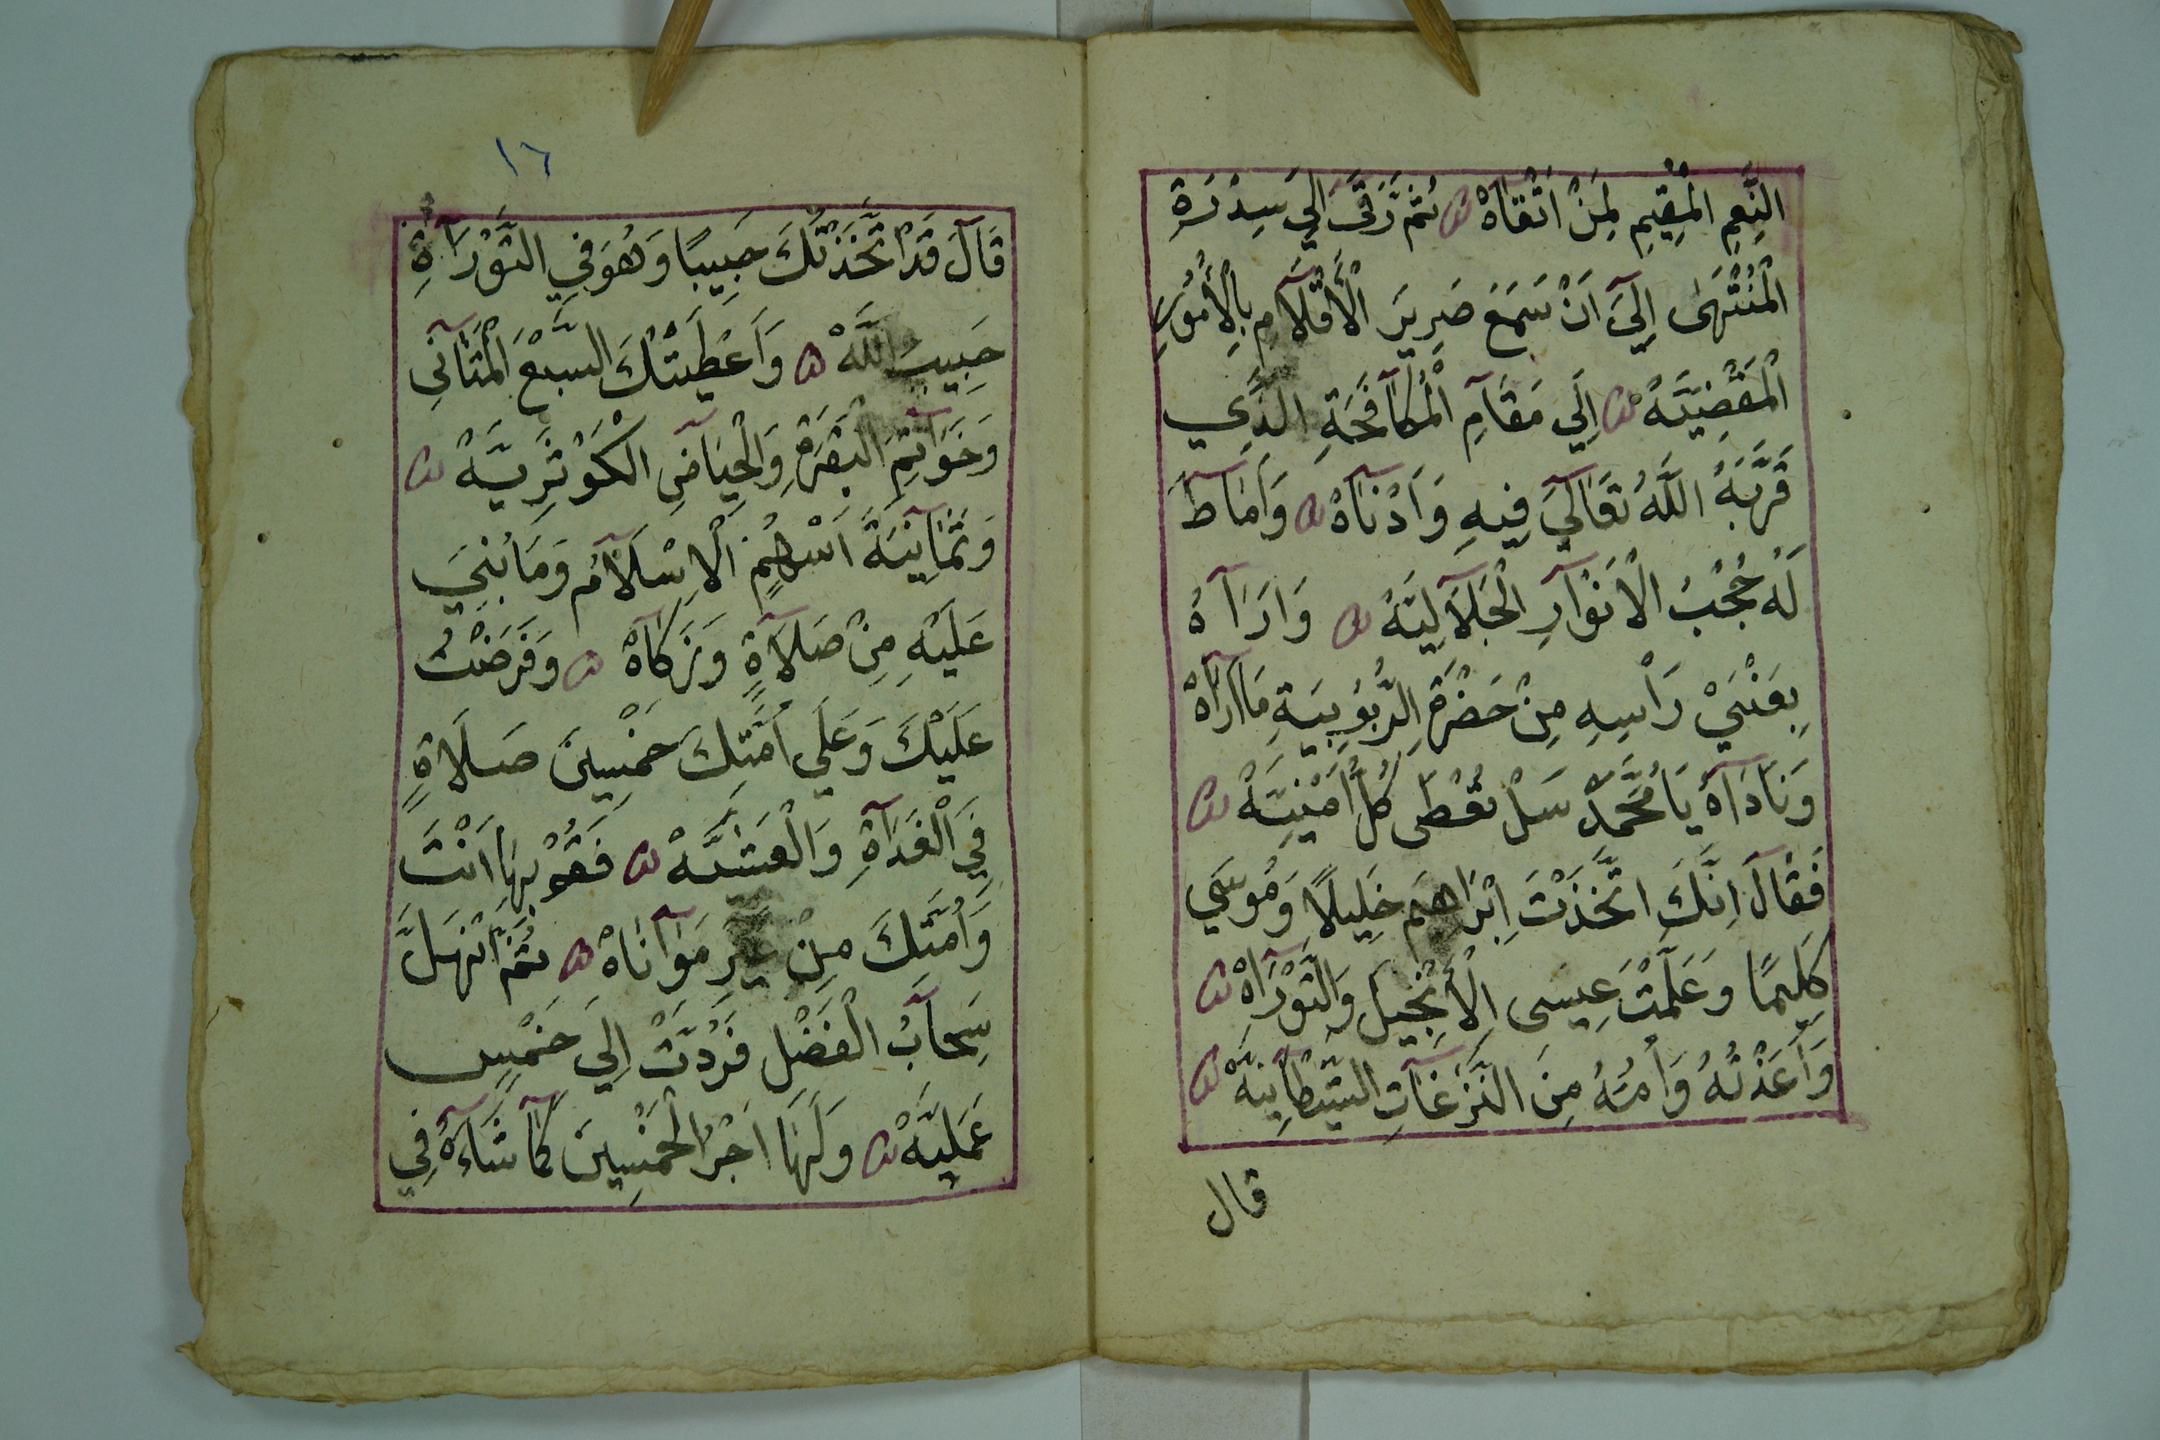 النِّعَمِ الْمُقِيمِ لِمَنْ اتْقَاهْ ثُمَّ رَقَّى إِلَي سِدْرَةِ
الْمُنْتَهَى إِلَيَ اَنْ سَمِعَ صَرِيرَ الْأَقْلَآمِ بِالْأُمُورِ
الْمَقْضِيَّهْ إِلَي مَقَآمِ الْمُكَآفَحَةِ الذِّي
قَرَّبَهُ اللَّهُ تَعَالَيَ فِيهِ وَاَدْنَآهْ وَاَمَاطَ
لَهُ حُجُبُ الْاَنْوَآرِ الْجَلَآلِيَّهْ وَاَرَآهُ
بِعَنْيَيْ رَاْسِهِ مِنْ حَضْرَةِ الرُّبُوبِيَةِ مَااَرَآهْ
وَنَادَآهُ يَا مُحَمَّدْ سَلْ تُعْطَى كُلَّ اُمْنِيَّهْ
فَقَالَ اِنَّكَ اتَّخَذْتَ اِبْرَاهِمَ خَلِيلًا وَمُوسَي
كَلِيمًا وَعَلَّمْتَ عِيسَى الْاِنْجِيلَ وَالتَّوْرَآهْ
وَاَعَذْتُهُ وَاُمُّهُ مِنَ النَّزَغَآتِ الشَّيْطَانِيَهْ
قال
١٦
قَآلَ قَدْ اتَّخَذْتُكَ حَبِيبًا وَهُوَ فِي التَّوْرَآةِ
حَبِيبُ اللَّهْ وَاَعْطَيْتُكَ السَّبْعَ الْمَثَآنِي
وَخَوَآتِمَ الْبَقَرَةِ وَالْحِيَآضِ الْكَوْثَرِيَّهْ
وَثَمَآنِيَةَ اَسْهُمٍ الْاِسْلَآمُ وَمَا بُنِيَ
عَلَيْهِ مِنْ صَلَآةٍ وَزَكَآهْ وَفَرَضْتُ
عَلَيْكَ وَعَلَي اُمَّتِكَ خَمْسِينَ صَلَاةٍ
فِي الْغَدَآةِ وَالْعَشِيَّهْ فَقُمْ بِهَا اَنْتَ
وَاُمَّتِكَ مِنْ غَيْرِ مَوَآنَاهْ ثُمَّ انْهَلَّ
سَحَآبُ الْفَضْلِ فَرُدَّتْ اِلَيَ خَمْسٍ
عَمَلِيَّهْ وَلَهَا اَجْرُ الْخَمْسِينَ كَمَآ شَآءَهُ فِي